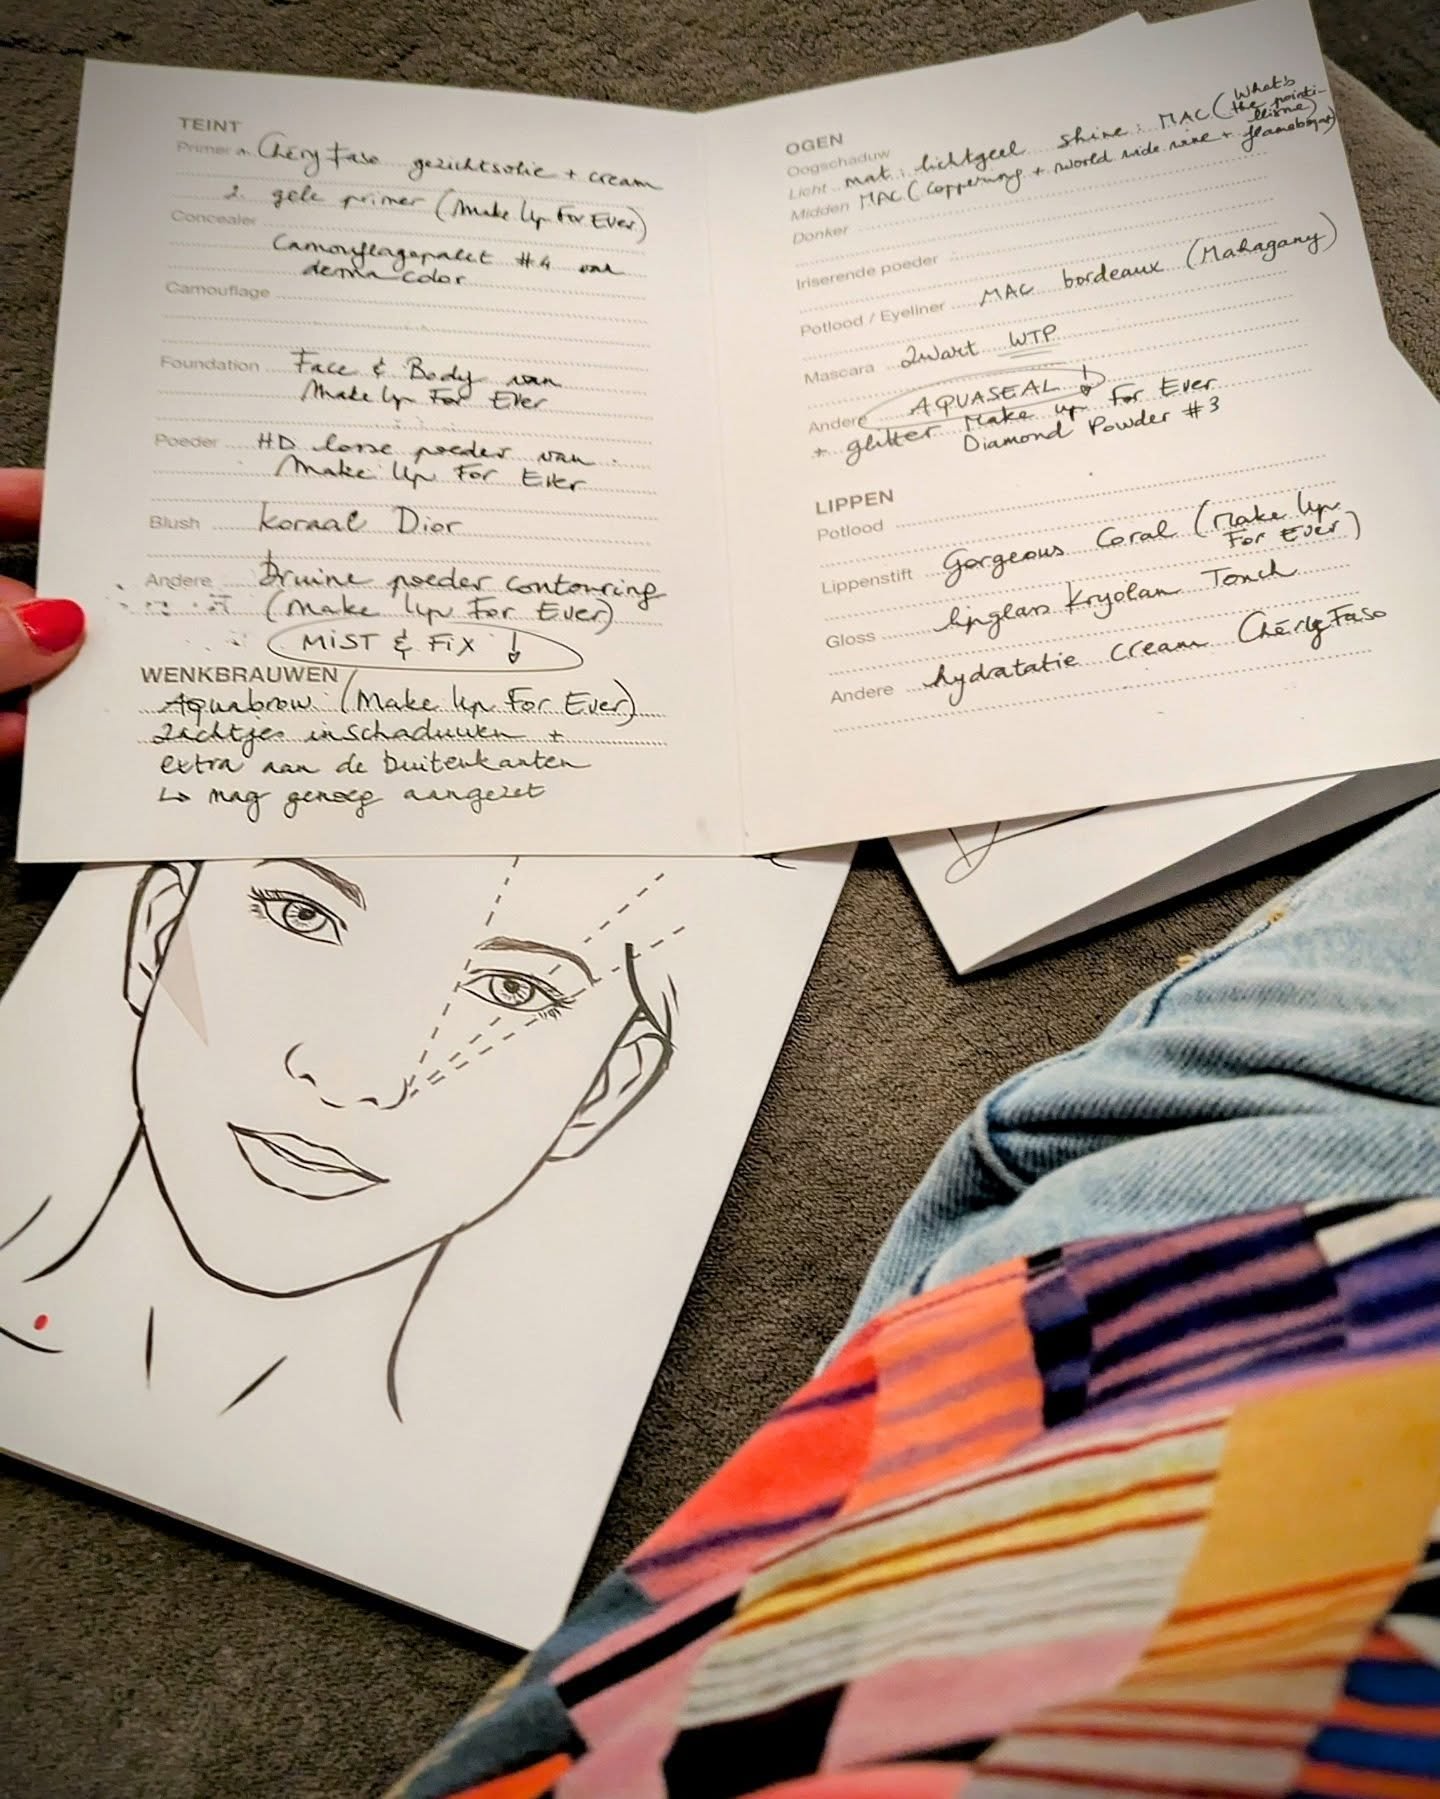 TEINT
Primer 1. Chéryfaso gezichtsolie + cream
2. gele primer (Make Up For Ever)
Concealer
Camouflagepalet #4 van
dermacolor
Camouflage
Foundation Face & Body van
Make Up For Ever
Poeder HD losse poeder van
Make Up For Ever
Blush koraal Dior
Andere Bruine poeder contouring
(Make Up For Ever)
MIST & FIX ↓
WENKBRAUWEN
Aquabrow (Make Up For Ever)
Zachtjes inschaduwen +
extra aan de buitenkanten
↳ mag genoeg aangezet
OGEN
Oogschaduw
Licht mat: lichtgeel shine: MAC (What's the pointillisme)
Midden MAC (Copperring + world wide wine + flamboyant)
Donker
Iriserende poeder
Potlood / Eyeliner MAC bordeaux (Mahagany)
Mascara zwart WTP
Andere AQUASEAL ↓
+ glitter Make up For Ever
Diamond Powder #3
LIPPEN
Potlood
Lippenstift Gorgeous Coral (Make Up
For Ever)
Gloss lipglass Kryolan Touch
Andere hydratatie cream ChéryFaso